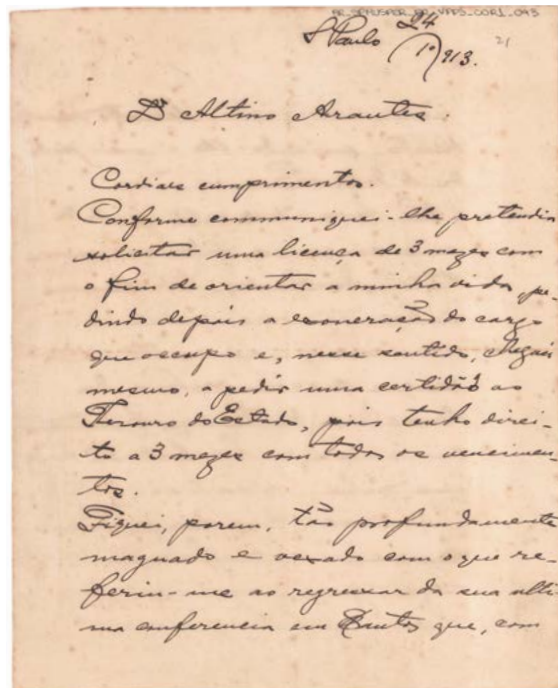 S Paulo 24
1º 913.
21
Dr Altino Arantes.
Cordiaes cumprimentos.
Conforme communiquei-lhe pretendia
solicitar uma licença de 3 mezes com
o fim de orientar a minha vida, pe-
dindo depois a exoneração do cargo
que occupo e, nesse sentido, cheguei
mesmo, a pedir uma certidão ao
Thesouro do Estado, pois tenho direi-
to a 3 mezes com todos os vencimen-
tos.
Fiquei, porem, tão profundamente
maguado e vexado com o que re-
feriu-me ao regressar da sua ulti-
ma conferencia em Santos que, com